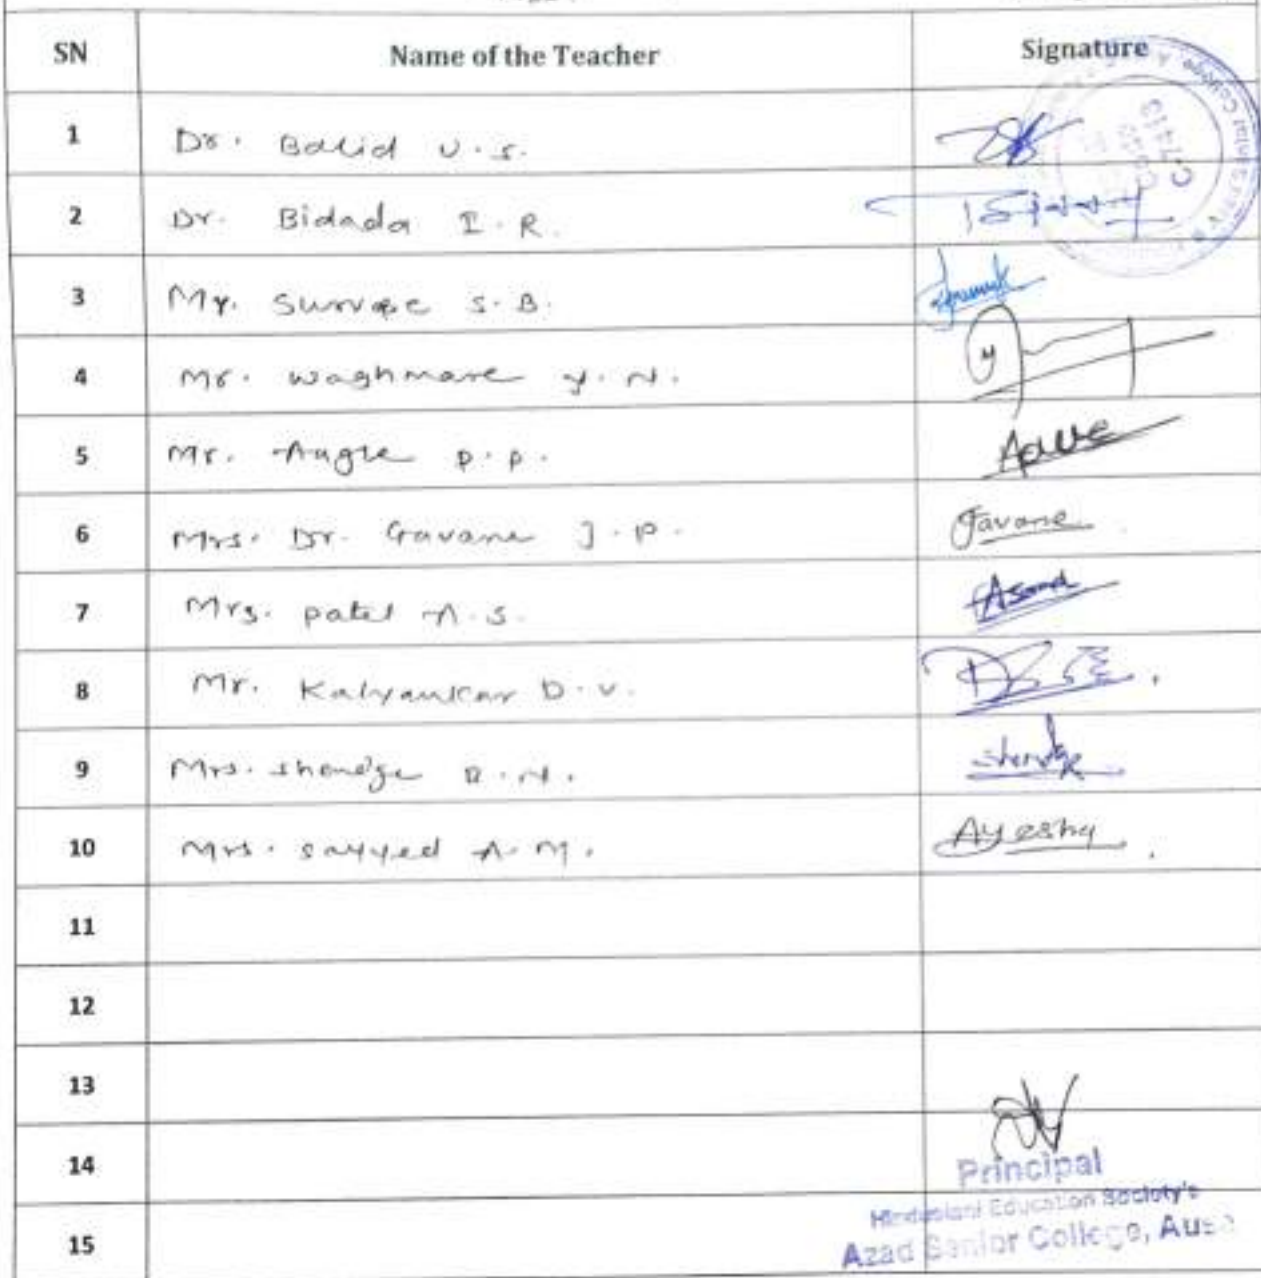 SN Name of the Teacher Signature
1 Dr. Balid U.S.
2 Dr. Bidada I.R.
3 Mr. Survase S.B.
4 Mr. Waghmare Y.N.
5 Mr. P.P. Apune
6 Mrs. Dr. Gavane J.P. Gavane
7 Mrs. Patel A.S.
8 Mr. Kalyankar D.V.
9 Mrs. Shendge Shendge
10 Mrs. Sayyed A.M. Ayesha
11
12
13
14 Principal
Hindustani Education Society's
15 Azad Senior College, Ausa